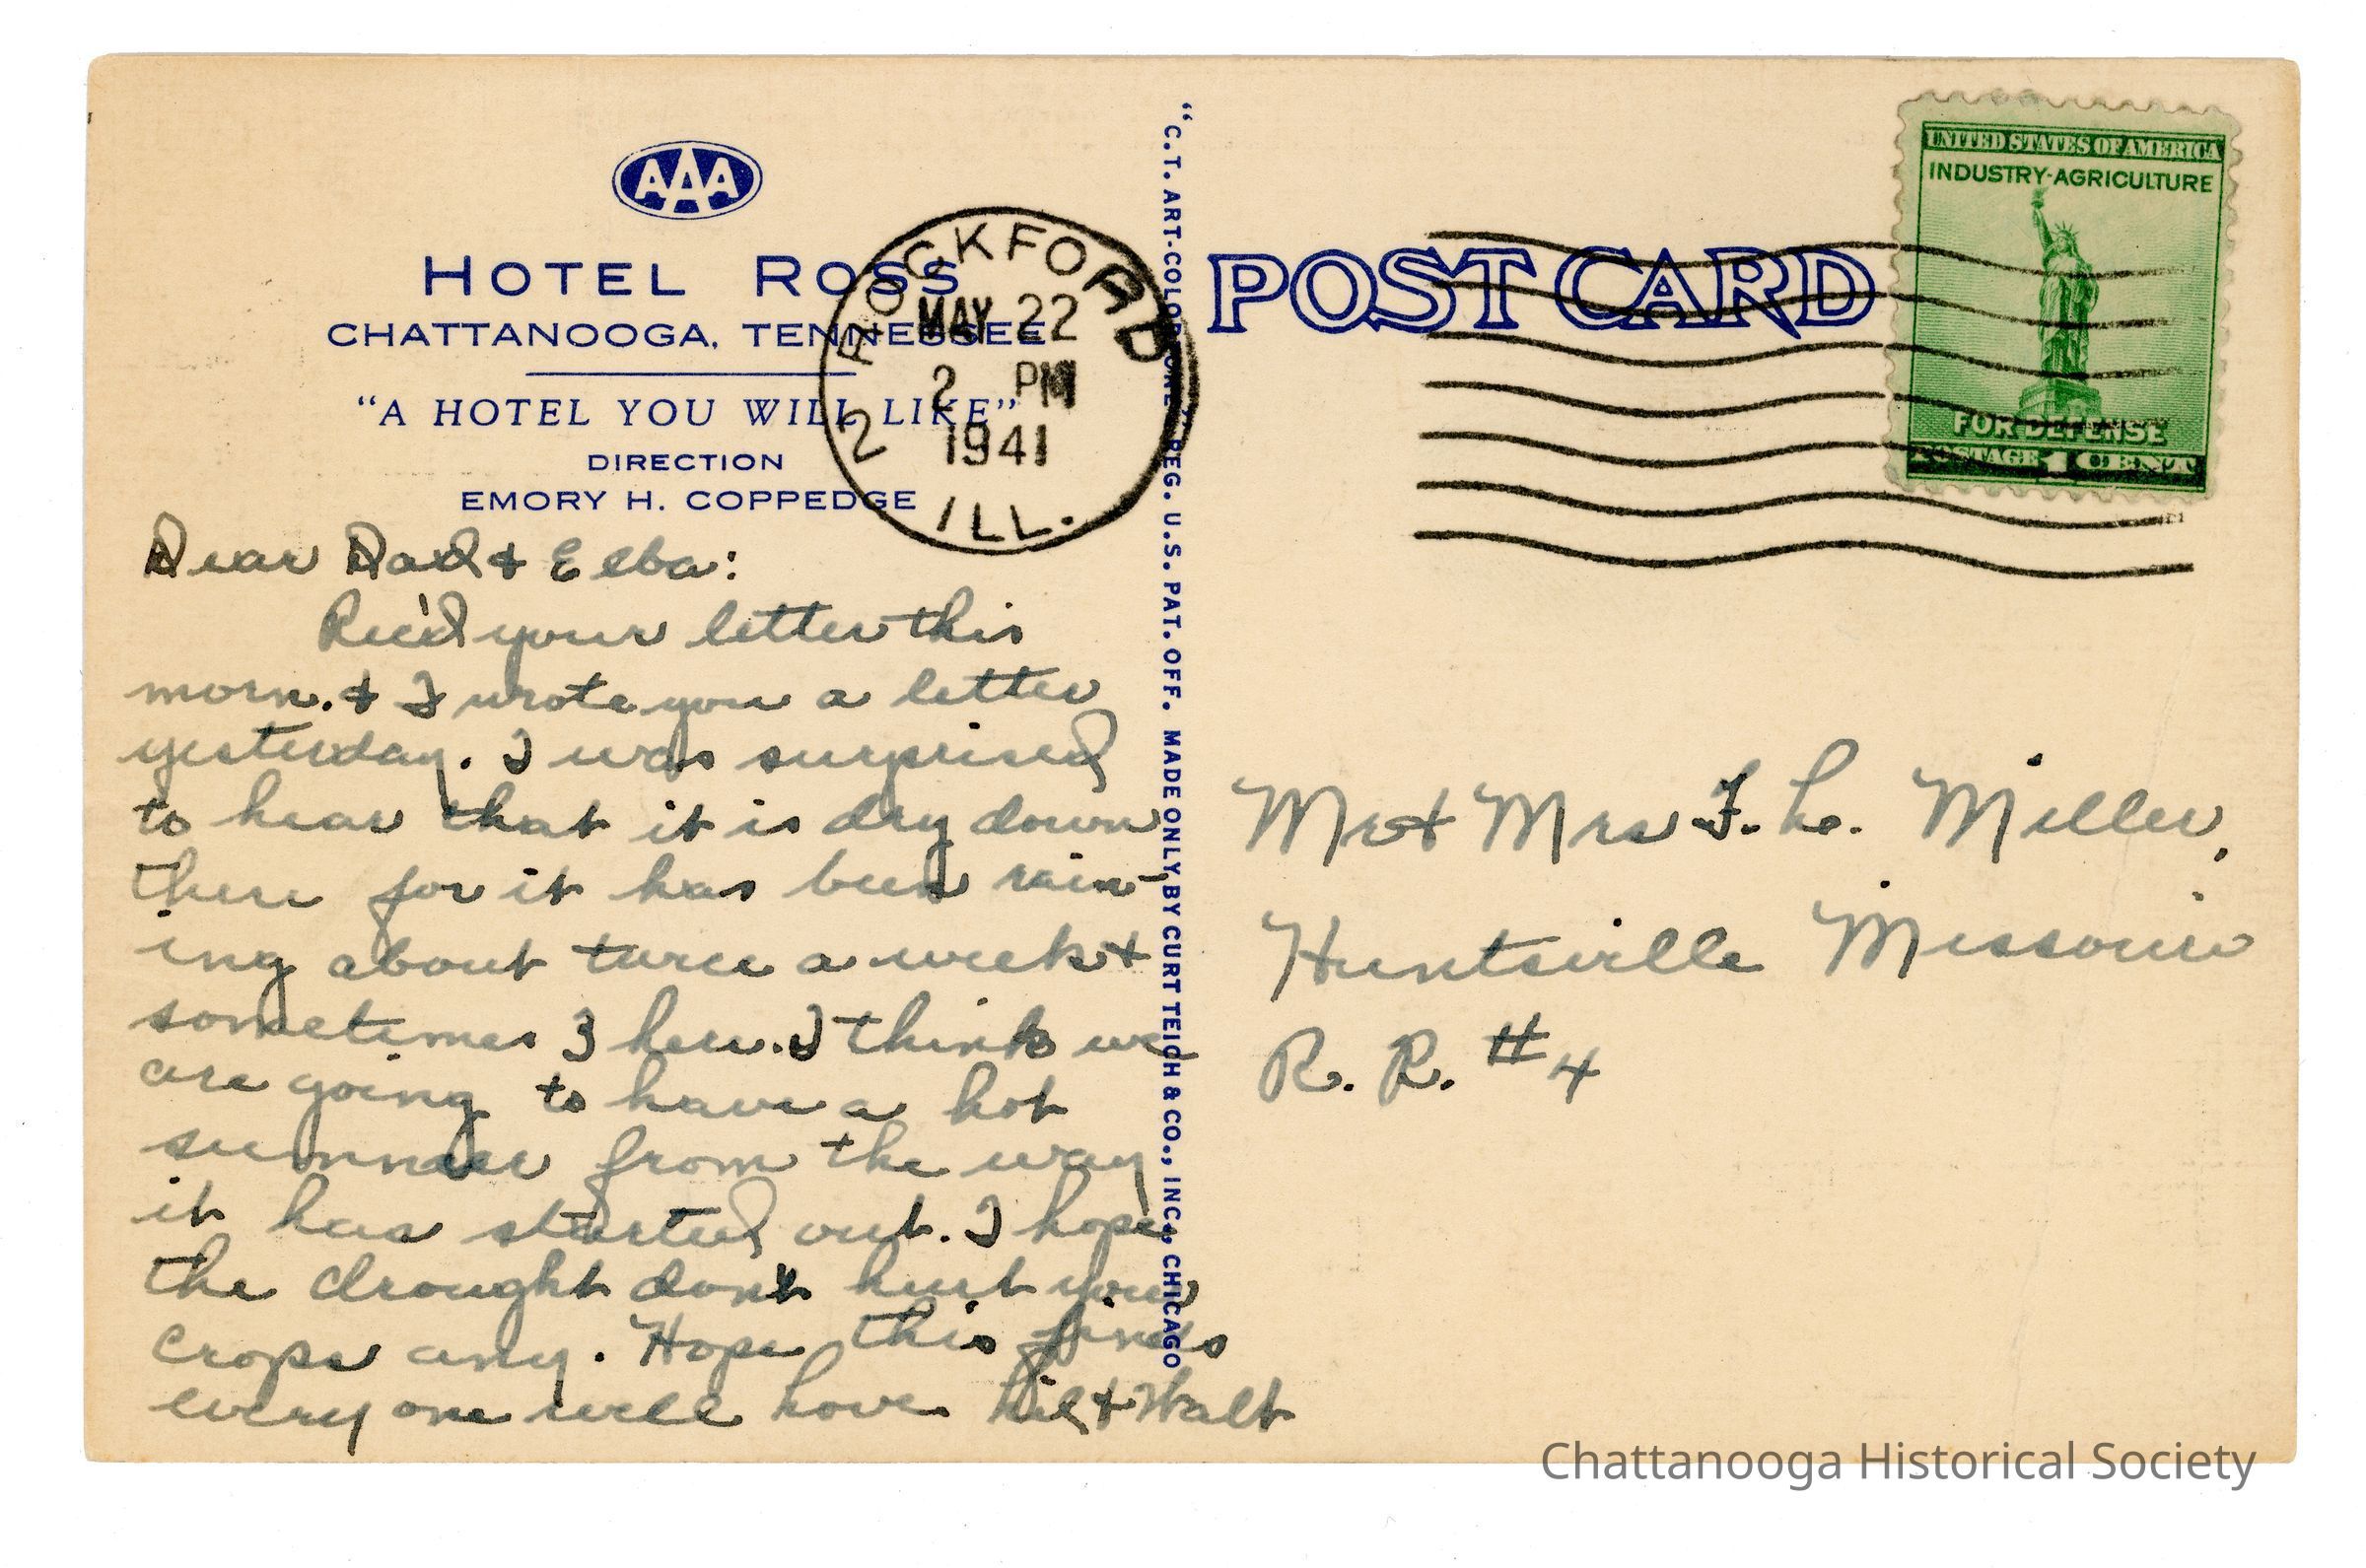 AAA
HOTEL ROSS
CHATTANOOGA, TENNESSEE
"A HOTEL YOU WILL LIKE"
DIRECTION
EMORY H. COPPEDGE
ROCKFORD
MAY 22
2 PM
1941
2
ILL.
Dear Dad & Elba:
Rec'd your letter this
morn. & I wrote you a letter
yesterday. I was surprised
to hear that it is dry down
there for it has been rain-
ing about twice a week &
sometimes 3 here. I think we
are going to have a hot
summer from the way
it has started out. I hope
the drought don't hurt your
crops any. Hope this finds
every one well love & Walt
"C.T. ART-COLORTONE" REG. U.S. PAT. OFF. MADE ONLY BY CURT TEICH & CO., INC., CHICAGO
POST CARD
UNITED STATES OF AMERICA
INDUSTRY-AGRICULTURE
FOR DEFENSE
POSTAGE 1 CENT
Mr & Mrs F. L. Miller,
Huntsville Missouri
R. R. #4
Chattanooga Historical Society